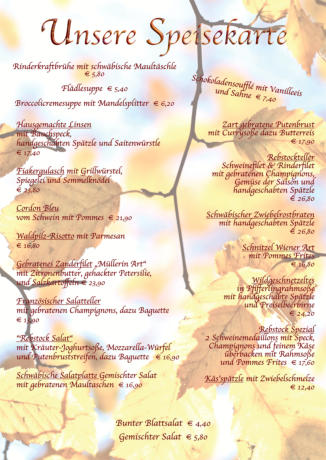 Unsere Speisekarte
Rinderkraftbrühe mit schwäbische Maultäschle
€ 5,80
Flädlesuppe € 5,40
Broccolicremesuppe mit Mandelsplitter € 6,20
Hausgemachte Linsen
mit Bauchspeck,
handgeschabten Spätzle und Saitenwürstle
€ 17,40
Fiakergulasch mit Grillwürstel,
Spiegelei und Semmelknödel
€ 23,80
Cordon Bleu
vom Schwein mit Pommes € 21,90
Waldpilz-Risotto mit Parmesan
€ 16,80
Gebratenes Zanderfilet „Müllerin Art“
mit Zitronenbutter, gehackter Petersilie,
und Salzkartoffeln € 23,90
Französischer Salatteller
mit gebratenen Champignons, dazu Baguette
"Rebstock Salat"
mit Kräuter-Joghurtsoße, Mozzarella-Würfel
und Putenbruststreifen, dazu Baguette € 16,90
Schwäbische Salatplatte Gemischter Salat
mit gebratenen Maultaschen € 16,90
Schokoladensoufflé mit Vanilleeis
und Sahne € 7,40
Zart gebratene Putenbrust
mit Currysoße dazu Butterreis
€ 17,90
Rebstockteller
Schweinefilet & Rinderfilet
mit gebratenen Champignons,
Gemüse der Saison und
handgeschabten Spätzle
€ 26,80
Schwäbischer Zwiebelrostbraten
mit handgeschabten Spätzle
€ 26,80
Schnitzel Wiener Art
mit Pommes Frites
€ 16,80
Wildgeschnetzeltes
in Pfifferlingrahmsoße
mit handgeschabte Spätzle
und Preiselbeerbirne
€ 24,20
Rebstock Spezial
2 Schweinemedaillons mit Speck,
Champignons und feinem Käse
überbacken mit Rahmsoße
und Pommes Frites € 17,60
Käs'spätzle mit Zwiebelschmelze
€ 12,40
Bunter Blattsalat € 4,40
Gemischter Salat € 5,80